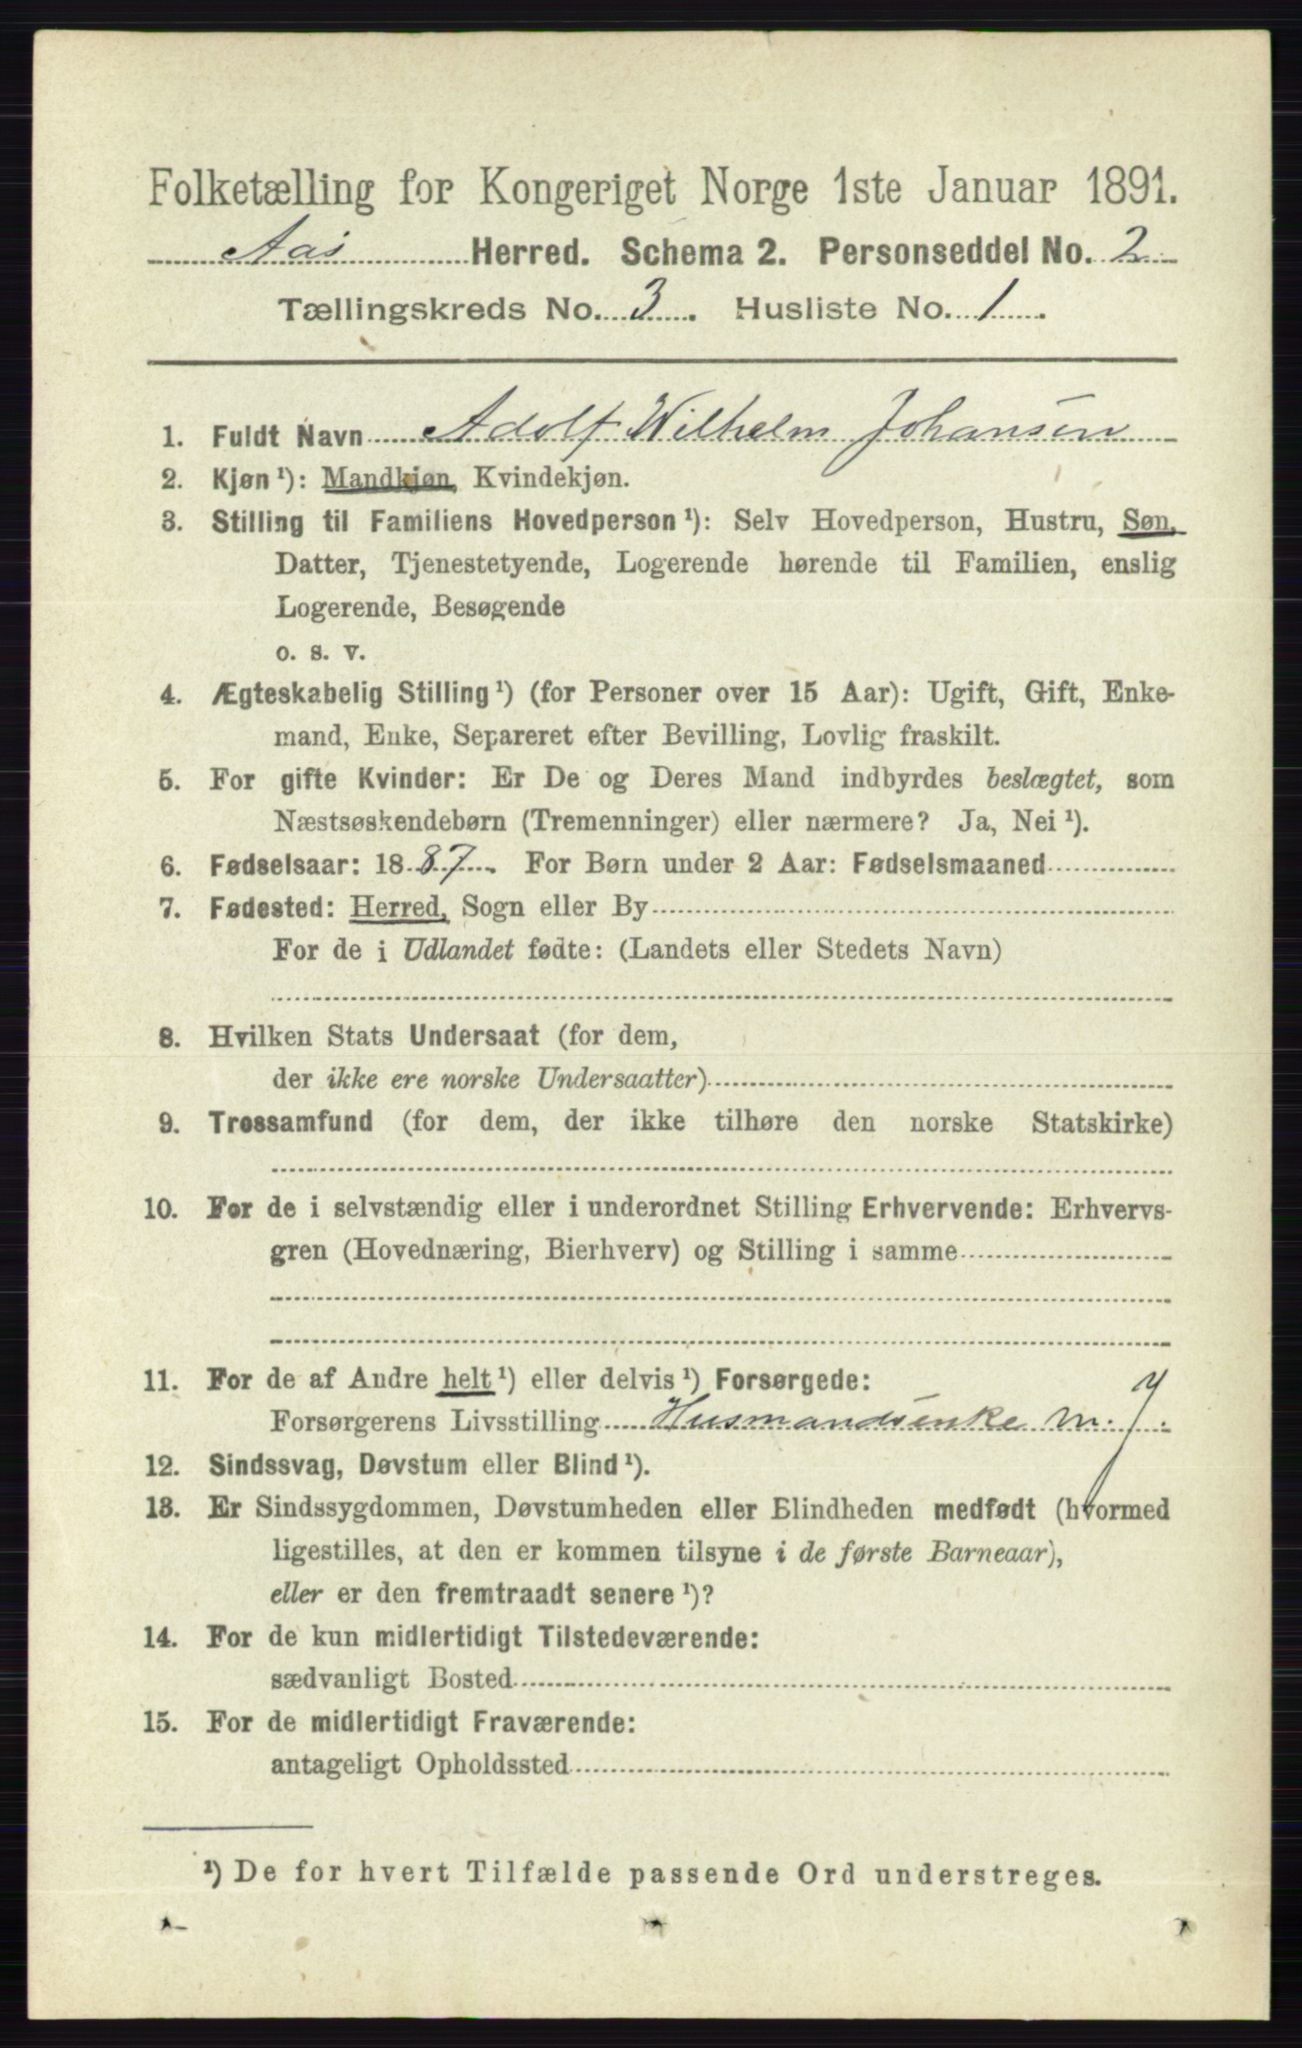 Folketælling for Kongeriget Norge 1ste Januar 1891.
Aas Herred. Schema 2. Personseddel No. 2
Tællingskreds No. 3. Husliste No. 1.
1. Fuldt Navn Adolf Wilhelm Johansen
2. Kjøn ¹): Mandkjøn, Kvindekjøn.
3. Stilling til Familiens Hovedperson ¹): Selv Hovedperson, Hustru, Søn,
Datter, Tjenestetyende, Logerende hørende til Familien, enslig
Logerende, Besøgende
o. s. v.
4. Ægteskabelig Stilling ¹) (for Personer over 15 Aar): Ugift, Gift, Enke-
mand, Enke, Separeret efter Bevilling, Lovlig fraskilt.
5. For gifte Kvinder: Er De og Deres Mand indbyrdes beslægtet, som
Næstsøskendebørn (Tremenninger) eller nærmere? Ja, Nei ¹).
6. Fødselsaar: 1887. For Børn under 2 Aar: Fødselsmaaned
7. Fødested: Herred, Sogn eller By
For de i Udlandet fødte: (Landets eller Stedets Navn)
8. Hvilken Stats Undersaat (for dem,
der ikke ere norske Undersaatter)
9. Trossamfund (for dem, der ikke tilhøre den norske Statskirke)
10. For de i selvstændig eller i underordnet Stilling Erhvervende: Erhvervs-
gren (Hovednæring, Bierhverv) og Stilling i samme
11. For de af Andre helt ¹) eller delvis ¹) Forsørgede:
Forsørgerens Livsstilling Husmandsenke m. J.
12. Sindssvag, Døvstum eller Blind ¹).
13. Er Sindssygdommen, Døvstumheden eller Blindheden medfødt (hvormed
ligestilles, at den er kommen tilsyne i de første Barneaar),
eller er den fremtraadt senere ¹)?
14. For de kun midlertidigt Tilstedeværende:
sædvanligt Bosted
15. For de midlertidigt Fraværende:
antageligt Opholdssted
¹) De for hvert Tilfælde passende Ord understreges.